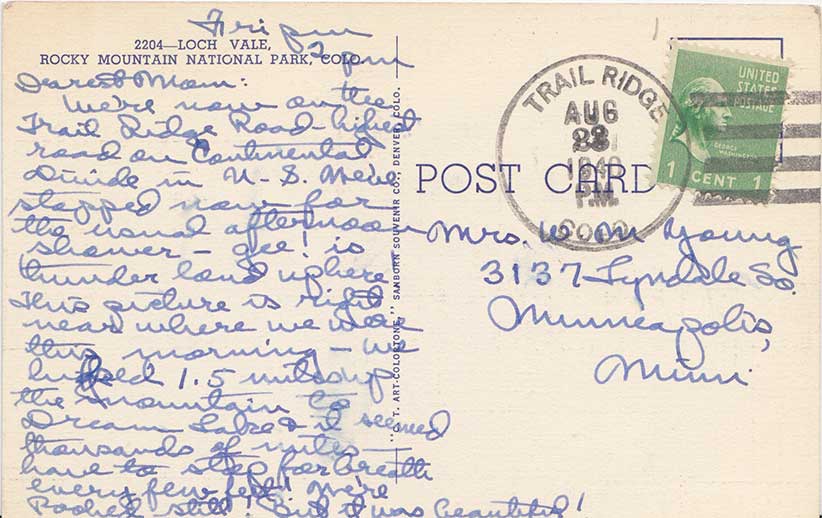 Fri pm
2 pm
2204—LOCH VALE,
ROCKY MOUNTAIN NATIONAL PARK, COLO.
Dearest Mom:
We're now on the
Trail Ridge Road - highest
road on Continental
Divide in U.S. We've
stopped now for
the usual afternoon
shower - gee! is
thunder loud up here
This picture is right
near where we were
this morning - we
hiked 1.5 miles up
the mountain to
Dream Lake & it seemed
thousands of miles -
have to stop for breath
every few feet! We're
pooped still! But it was beautiful!
"C.T. ART-COLORTONE," SANBORN SOUVENIR CO., DENVER, COLO.
POST CARD
TRAIL RIDGE
AUG
P.M.
COLO
UNITED
STATES
POSTAGE
GEORGE
WASHINGTON
1 CENT 1
Mrs. W. M. Young
3137 Lyndale So.
Minneapolis,
Minn.